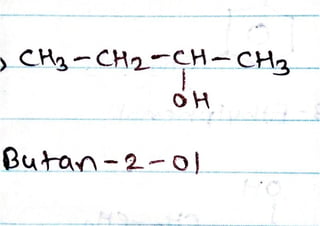 , CH₃-CH₂-CH-CH₃
OH
Butan-2-ol